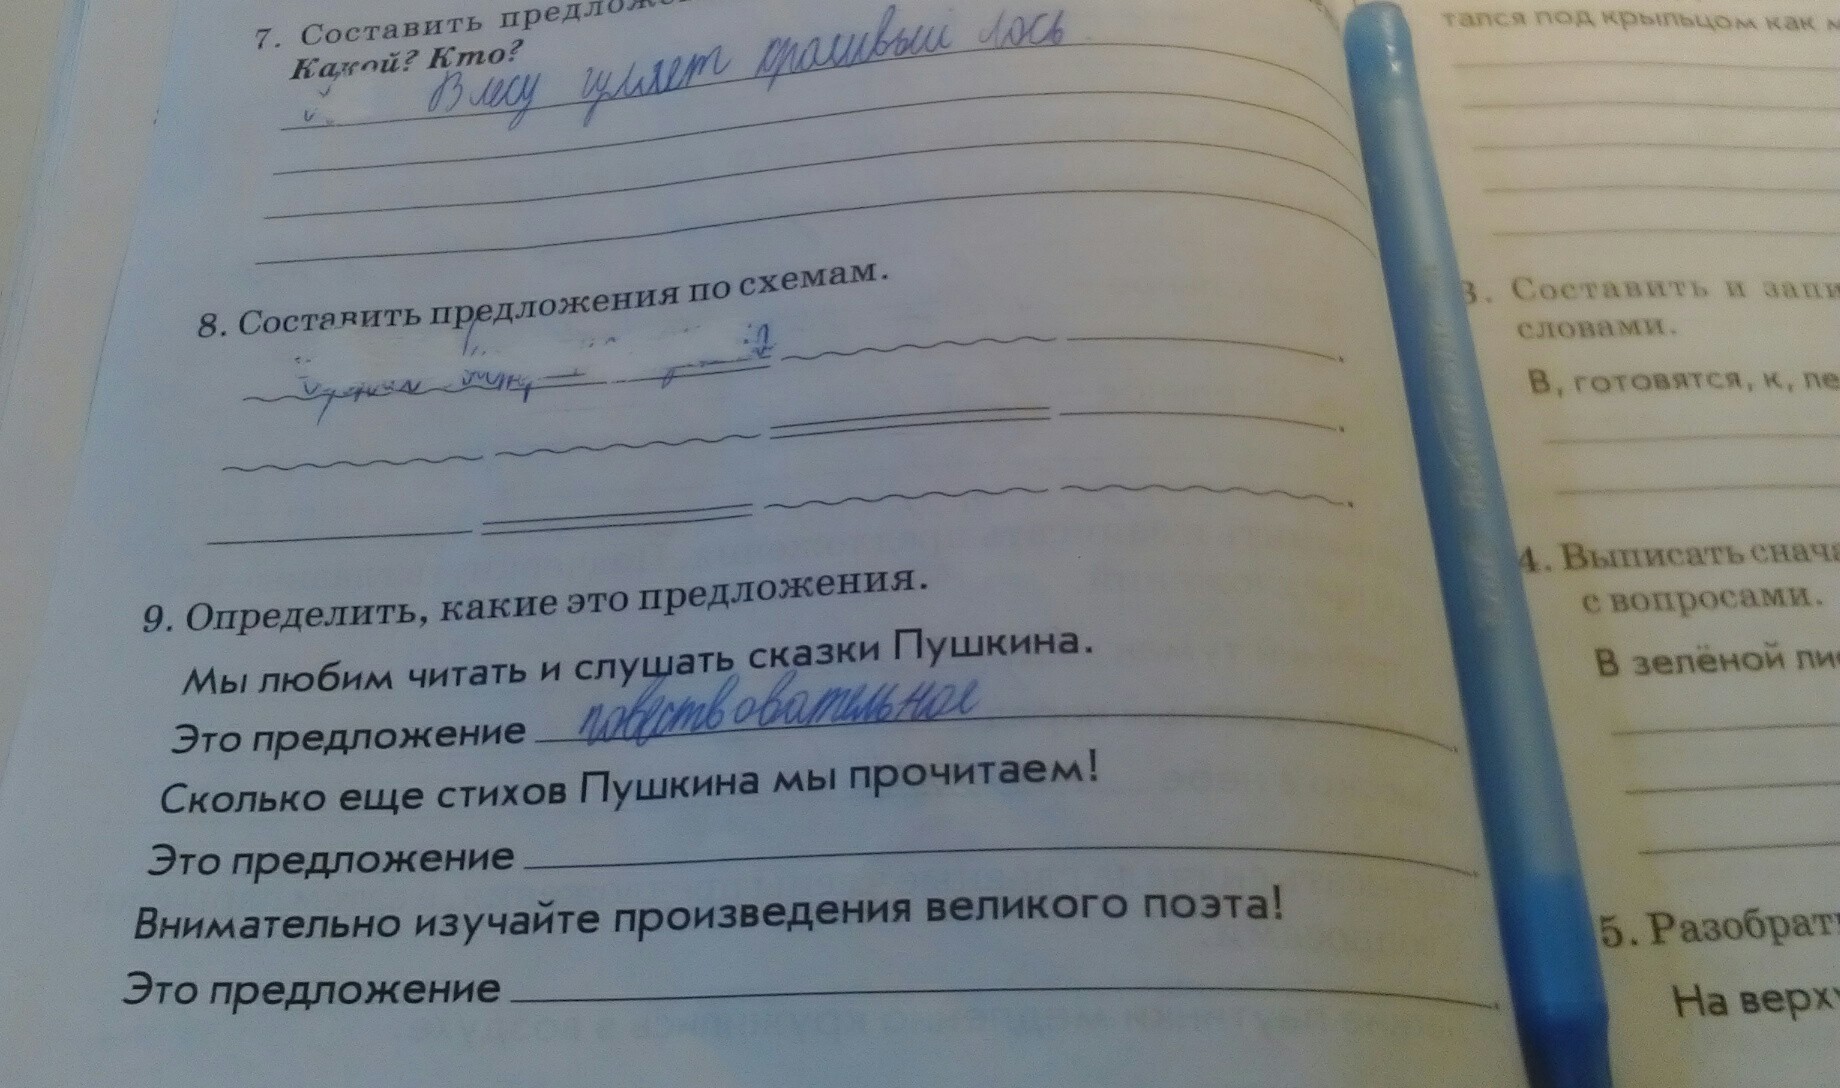 7. Составить
Какой? Кто?
В лесу гуляет красивый лось
8. Составить предложения по схемам.
9. Определить, какие это предложения.
Мы любим читать и слушать сказки Пушкина.
Это предложение повествовательное.
Сколько еще стихов Пушкина мы прочитаем!
Это предложение .
Внимательно изучайте произведения великого поэта!
Это предложение .
под крыльцом как
3. Составить и
словами.
В, готовятся, к,
4. Выписать
с вопросами.
В зелёной
5.
На